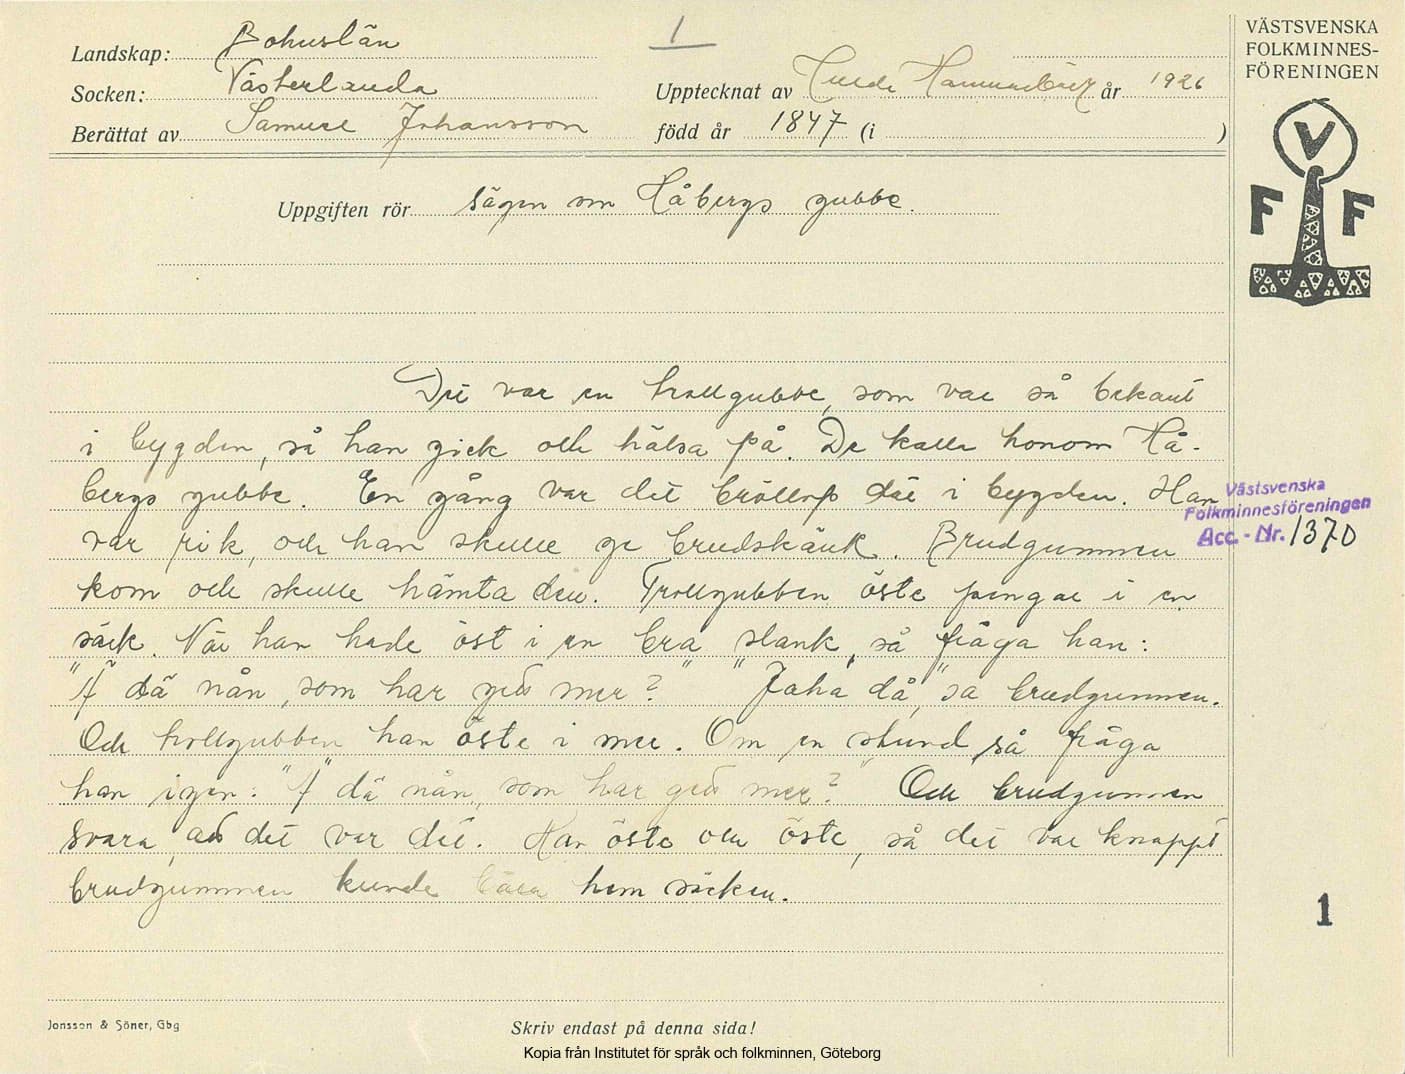 1
Landskap: Bohuslän
Socken: Västerlanda
Upptecknat av år 1926
Berättat av Samuel Johansson
född år 1847 (i )
Uppgiften rör Sägen om Håbergs gubbe.
VÄSTSVENSKA
FOLKMINNES-
FÖRENINGEN
V
F F
Det var en trollgubbe, som var så bekant
i bygden, så han gick och hälsa på. De kalla honom Hå-
bergs gubbe. En gång var det bröllop där i bygden. Han
var rik, och han skulle ge brudskänk. Brudgummen
kom och skulle hämta den. Trollgubben öste pengar i en
säck. När han hade öst i en bra slank, så fråga han:
"Ä dä nån, som har gett mer?" "Jaha då," sa brudgummen.
Och trollgubben han öste i mer. Om en stund så fråga
han igen: "Ä dä nån, som har gett mer?" Och brudgummen
svara, att det var det. Han öste och öste, så det var knappt
brudgummen kunde bära hem säcken.
Västsvenska
Folkminnesföreningen
Acc.-Nr. 1370
1
Jonsson & Söner, Gbg
Skriv endast på denna sida!
Kopia från Institutet för språk och folkminnen, Göteborg